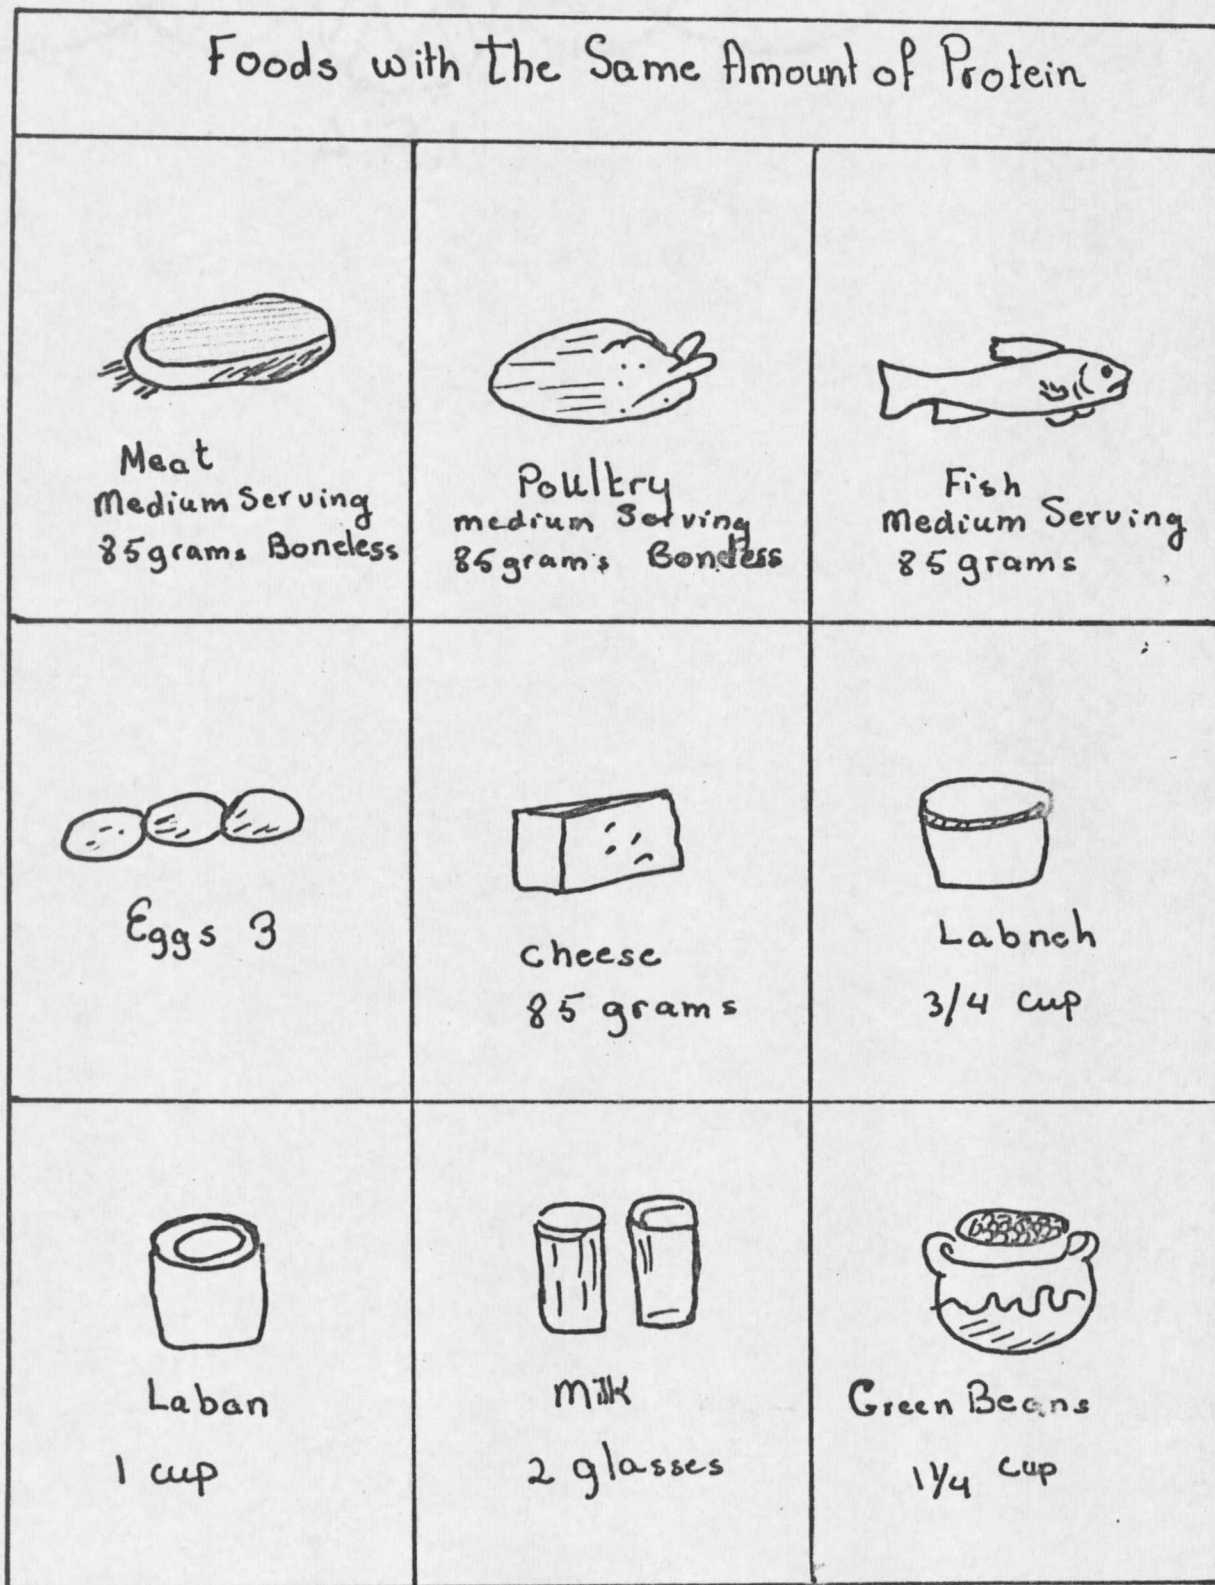 Foods with The Same Amount of Protein
Meat
Medium Serving
85 grams Boneless
Poultry
medium Serving
85 grams Boneless
Fish
Medium Serving
85 grams
Eggs 3
cheese
85 grams
Labneh
3/4 cup
Laban
1 cup
Milk
2 glasses
Green Beans
1 1/4 cup